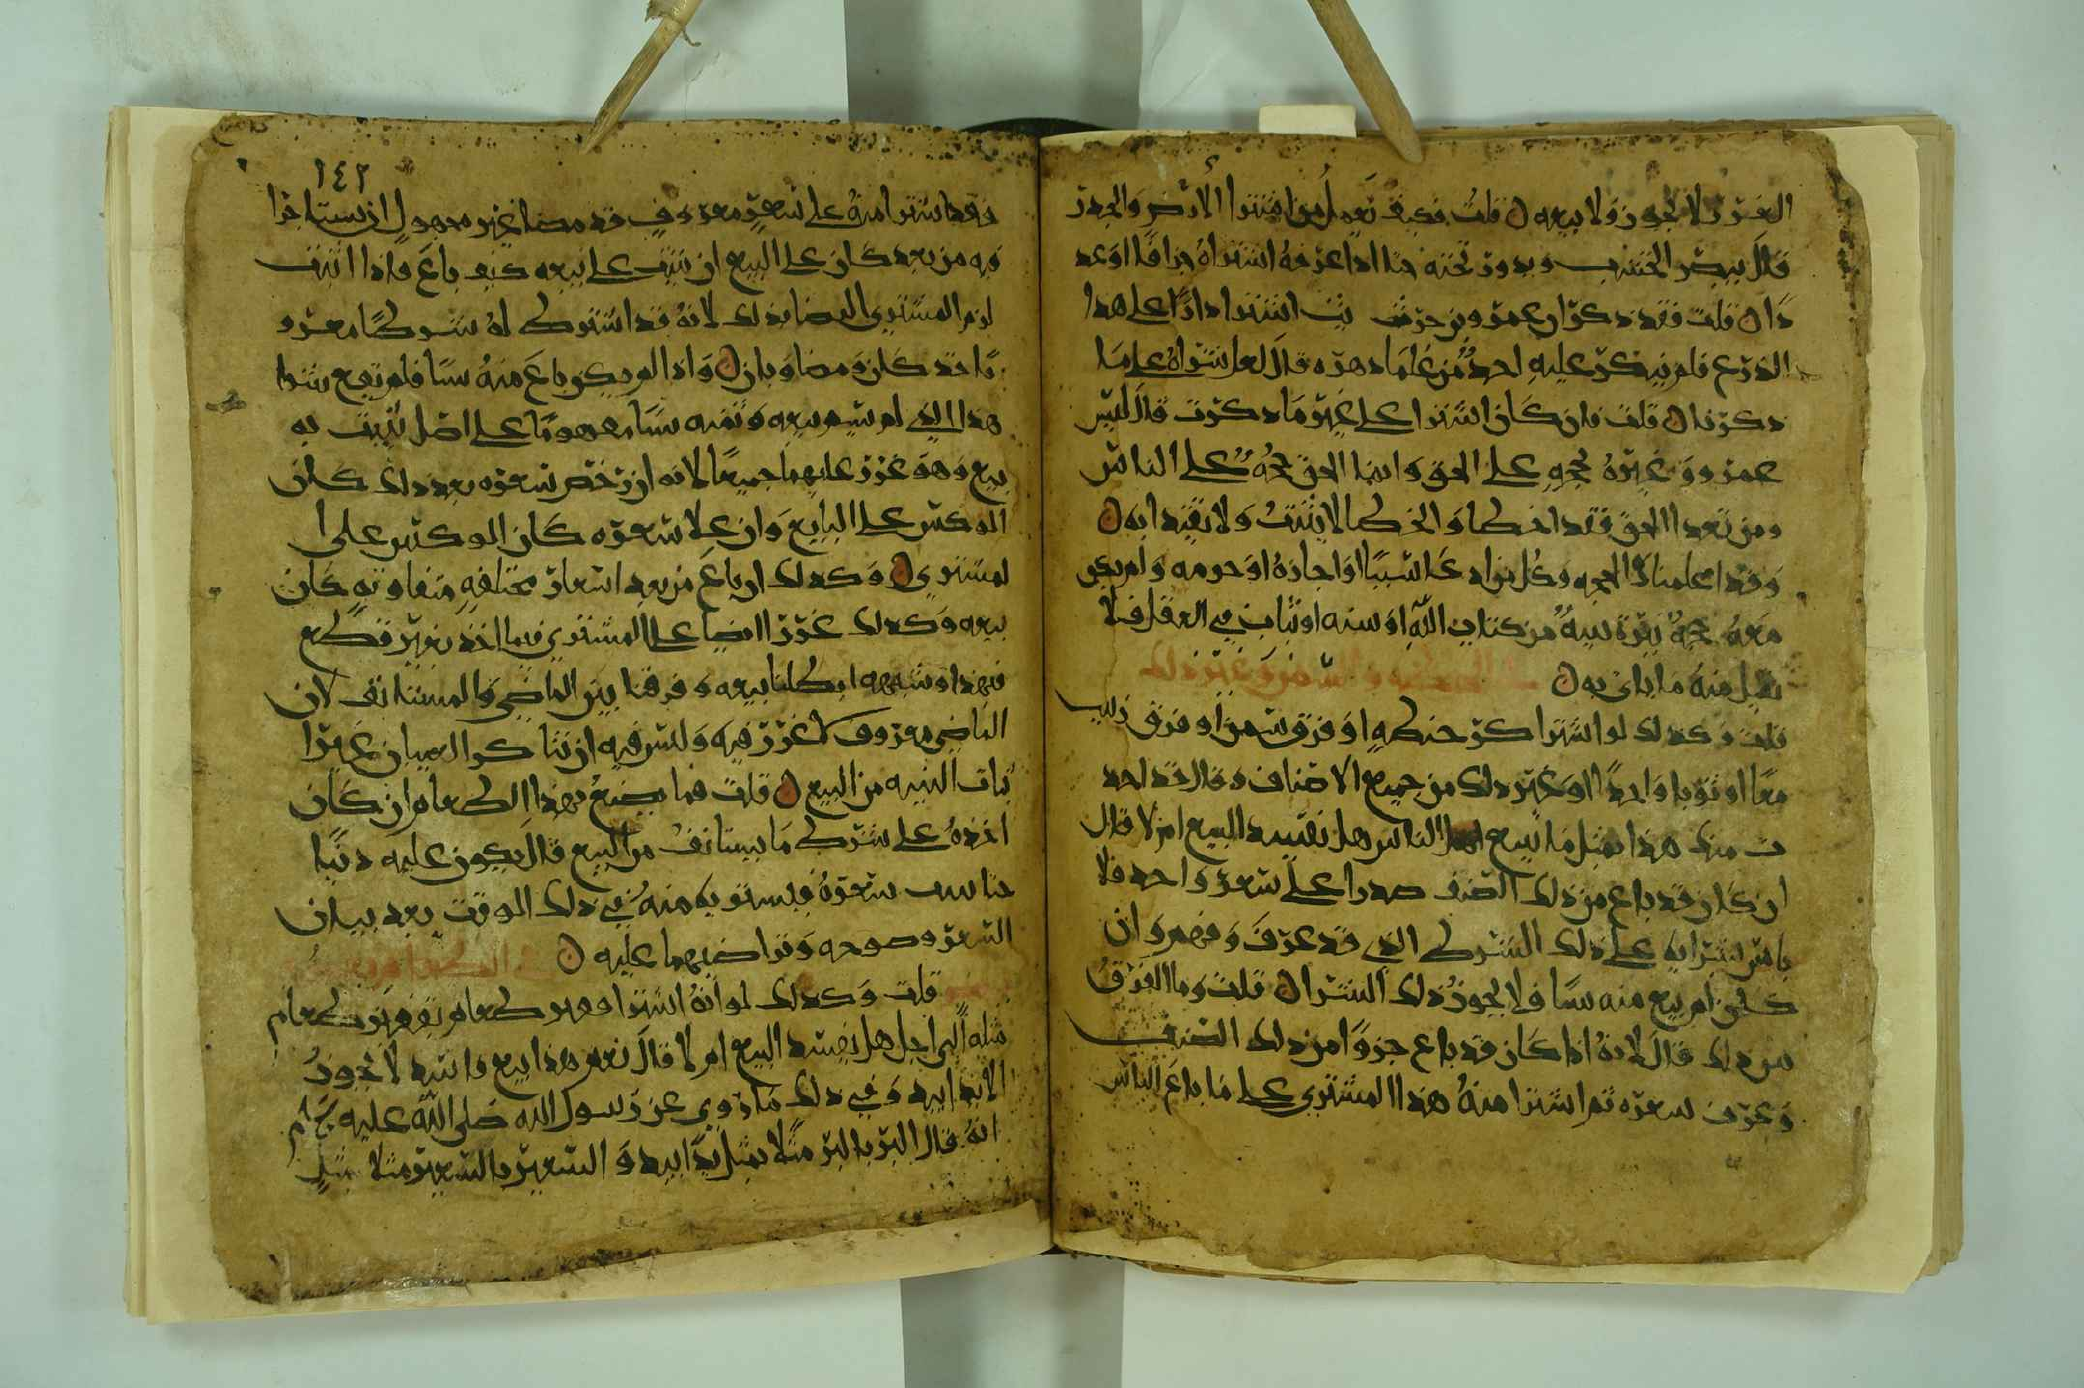 الغرر لا يجوز ولا بيعه ن قلت فكيف نعمل من اشترا الأرض والجدر
قال يبصر الخشب وبدون تحته حتا اذا عرفه اشتراه جزافا او عد
دا ن قلت فقد ذكر ان عمرو بن حزيث اشترا دارا على هذا
الذرع فلم ينكر عليه احد من علما دهره قال لعل شراه على ما
ذكرنا ن قلت فان كان اشترا على غير ما ذكرت قال ليس
عمرو وغيره بحجه على الحق وانما الحق حجه على الناس
ومن تعدا الحق فقد اخطا والخطا لا يثبت ولا يقتدا به ن
وقد اعلمناك الحجه وكل من اد عا شييا او اجازه او حرمه ولم يكن
معه حجة نيرة بينة من كتاب الله او سنه او ثبات في العقل فلا
يقبل منه ما ياتي به ن في الحنطه والسمن وغير ذلك
قلت وكذلك لو اشترا كر حنطه او فرق سمن او فرق زيت
معا او ثوبا واحدا او غير ذلك من جميع الاصناف وقال قد اخذ
ت منك هذا بمثل ما تبيع الناس هل يفسد البيع ام لا قال
ان كان قد باع من ذلك الصنف صدرا على سعر واحد فلا
باس بشرايه على ذلك الشرط الذي قد عرف وفهم وان
كان لم يبع منه شيا فلا يجوز ذلك الشرا ن قلت وما الفرق
بين ذلك قال لانه اذا كان قد باع جزوا من ذلك الصنف
وعرف سعره ثم اشترا منه هذا المشتري على ما باع الناس
١٤٢
فقد اشترا منه على سعر معروف قد مضا غير مجهول ان يستاخرا
فيه من بعد كان على البيع ان يثبت على بيعه كيف باع فاذا اثبت
لزم المشتري ايضا بذلك لانه قد اشترط له شرطا معرو
فا قد كان ومضا وبان ن واذا لم يكن باع منه شيا فلم يقع شرا
هذا الذي لم يتم بيعه وثمنه شيا مفهوما على اصل يثبت به
بيع وهو غرر عليهما جميعا لانه ان رخص سعره بعد ذلك كان
الوكس على البايع وان علا سعره كان الوكس على ا
لمشتري ن وكذلك ان باع من بعد اسعار مختلفه متفاوته كان
بيعه وكذلك غررا ايضا على المشتري فيما اخذ بغير قطع
فبهذا وشبهه ابطلنا بيعه وفرقنا بين الماضي والمستانف لان
الماضي معروف لا غرر فيه وليس فيه ان يتشاكوا البيعان غيرا
ثبات النيه من البيع ن قلت فما يصنع بهذا الطعام ان كان
اخذه على شرط ما يستانف من البيع قال يكون عليه دينا
حتا يسعره فيستوفيه منه في ذلك الوقت بعد بيان
السعر وضوحه وتراضيهما عليه ن في الطعام
قلت وكذلك لو انه اشترا وهو طعام بقفيز طعام
مثله الى اجل هل يفسد البيع ام لا قال نعم هذا بيع فاسد لا يجوز
الا يدا بيد وفي ذلك ما روي عن رسول الله صلى الله عليه
انه قال البر بالبر مثلا بمثل يدا بيد والشعير بالشعير مثلا بمثل